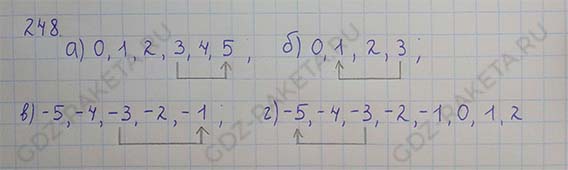 248.
а) 0, 1, 2, 3, 4, 5 ; б) 0, 1, 2, 3 ;
в) -5, -4, -3, -2, -1 ; г) -5, -4, -3, -2, -1, 0, 1, 2
GDZ-RAKETA.RU
GDZ-RAKETA.RU
GDZ-RAKETA.RU